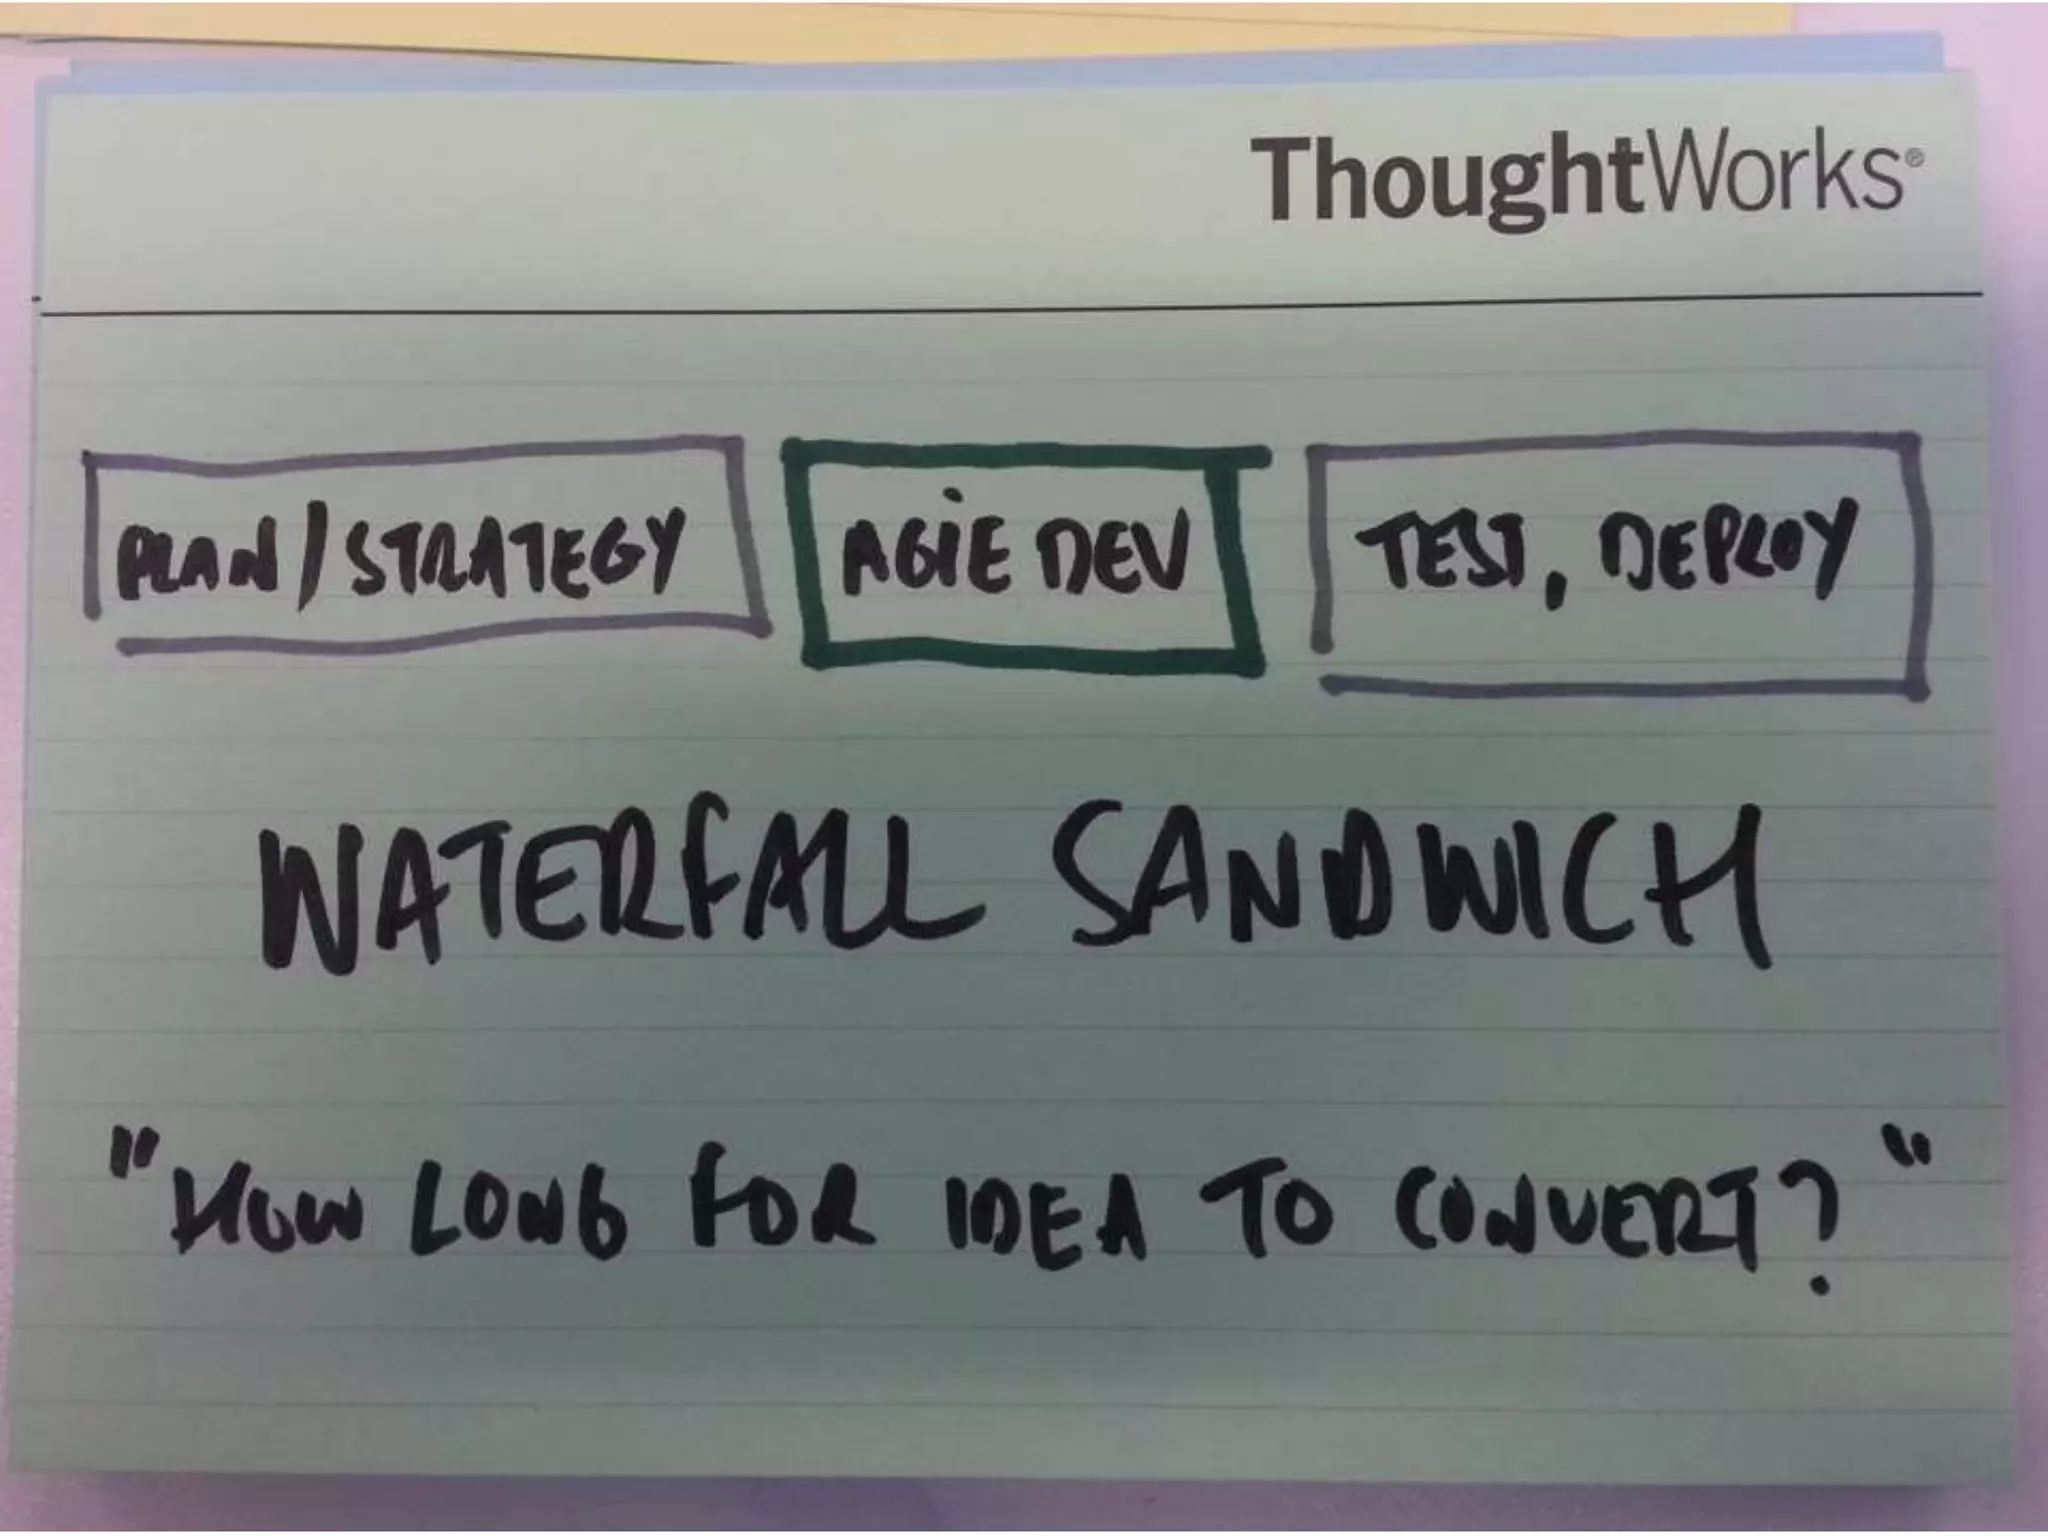 ThoughtWorks®
PLAN/STRATEGY AGIE DEV TEST, DEPLOY
WATERFALL SANDWICH
"HOW LONG FOR IDEA TO CONVERT?"